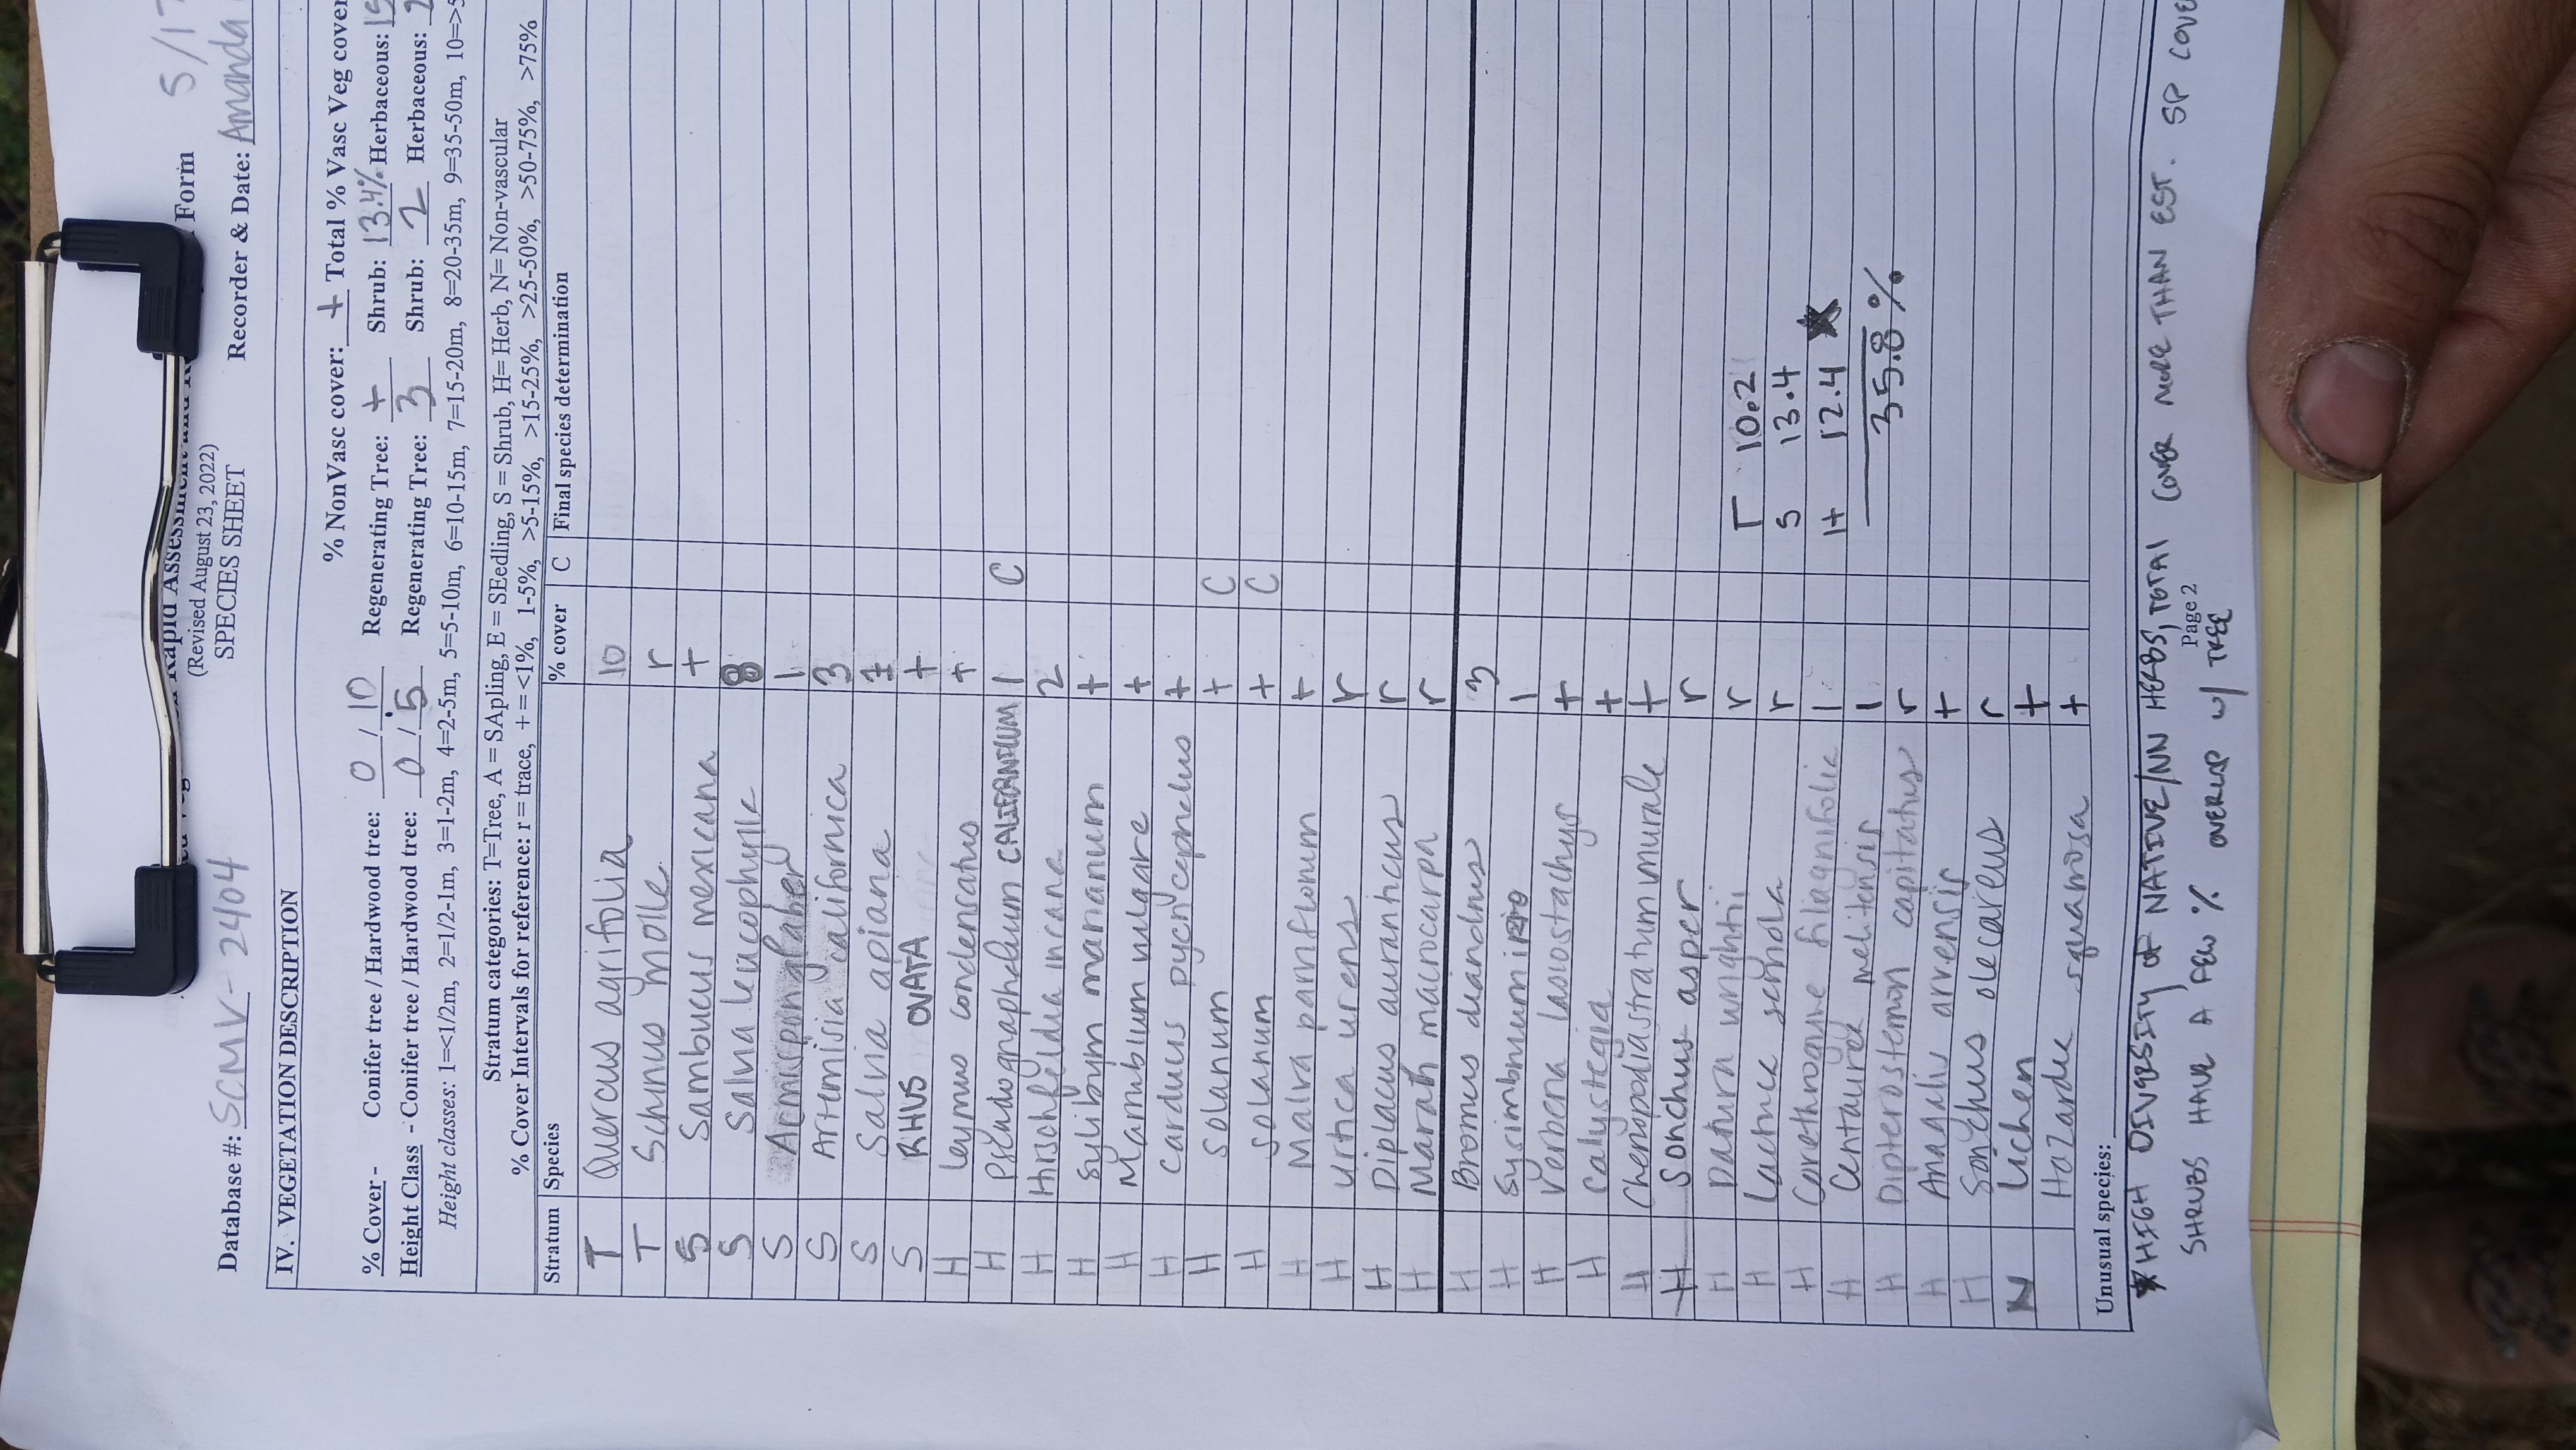 Rapid Assessment and R
Form
5/17
(Revised August 23, 2022)
SPECIES SHEET
Database #: SCMV-2404
Recorder & Date: Amanda
IV. VEGETATION DESCRIPTION
% NonVasc cover: + Total % Vasc Veg cover
% Cover - Conifer tree / Hardwood tree: 0 / 10 Regenerating Tree: + Shrub: 13.4% Herbaceous:
Height Class - Conifer tree / Hardwood tree: 0 / 5 Regenerating Tree: 3 Shrub: 2 Herbaceous: 2
Height classes: 1=<1/2m, 2=1/2-1m, 3=1-2m, 4=2-5m, 5=5-10m, 6=10-15m, 7=15-20m, 8=20-35m, 9=35-50m, 10=>5
Stratum categories: T=Tree, A = SApling, E = SEedling, S = Shrub, H= Herb, N= Non-vascular
% Cover Intervals for reference: r = trace, + = <1%, 1-5%, >5-15%, >15-25%, >25-50%, >50-75%, >75%
Stratum Species % cover C Final species determination
T Quercus agrifolia 10
T Schinus molle r
S Sambucus mexicana +
S Salvia leucophylla 8
S Acmispon glaber 1
S Artemisia californica 3
S Salvia apiana +
S RHUS OVATA +
H Leymus condensatus +
H Pseudognaphalium CALIFORNICUM 1 C
H Hirschfeldia incana 2
H Sylibym marianum +
H Marubium vulgare +
H Carduus pycnycephelus +
H Solanum + C
H Solanum + C
H Malva parviflorum +
H Urtica urens r
H Diplacus auranticus r
H Marah macrocarpa r
H Bromus diandrus 3
H Sysimbrium irio 1
H Verbena lasiostachys +
H Calystegia +
H Chenopodiastratum murale +
H Sonchus asper r
H Datura wrightii r T 10.2
H Lactuca serriola r S 13.4
H Corethrogyne filaginifolia 1 H 12.4 *
H Centaurea melitensis 1 35.8%
H Dipterostemon capitatus r
H Anagalis arvensis +
H Sonchus olecareus r
N Lichen +
Hazardia squamosa +
Unusual species:
*HIGH DIVERSITY of NATIVE/NN HERBS, TOTAL COVER MORE THAN EST. SP COVE
Page 2
SHRUBS HAVE A FEW % OVERLAP w/ TREE